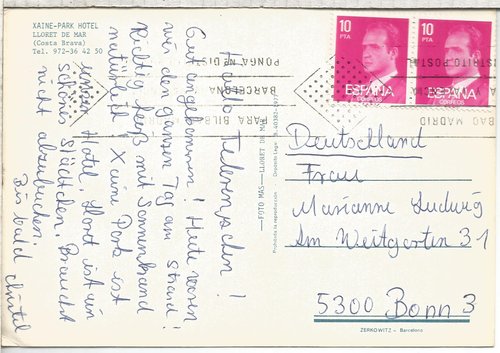 XAINE-PARK HOTEL
LLORET DE MAR
(Costa Brava)
Tel. 972-36 42 50
Gut angekommen! Heute waren
wir den ganzen Tag am Strand!
Richtig heiß mit Sonnenbrand
natürlich! Xaine Park ist
unser Hotel, Lloret ist ein
schönes Städtchen. Brauchst
nicht abzubuchen.
Bis bald
FOTO MAS—LLORET DE MAR
Prohibida la reproducción
10
PTA
ESPAÑA
CORREOS
10
PTA
ESPAÑA
CORREOS
PONGA Nº DIS
BARCELONA
PARA BILB
DISTRITO POSTAL
BAO MADRID
Deutschland
Frau
Marianne Ludwig
Am Weitgarten 31
5300 Bonn 3
ZERKOWITZ - Barcelona